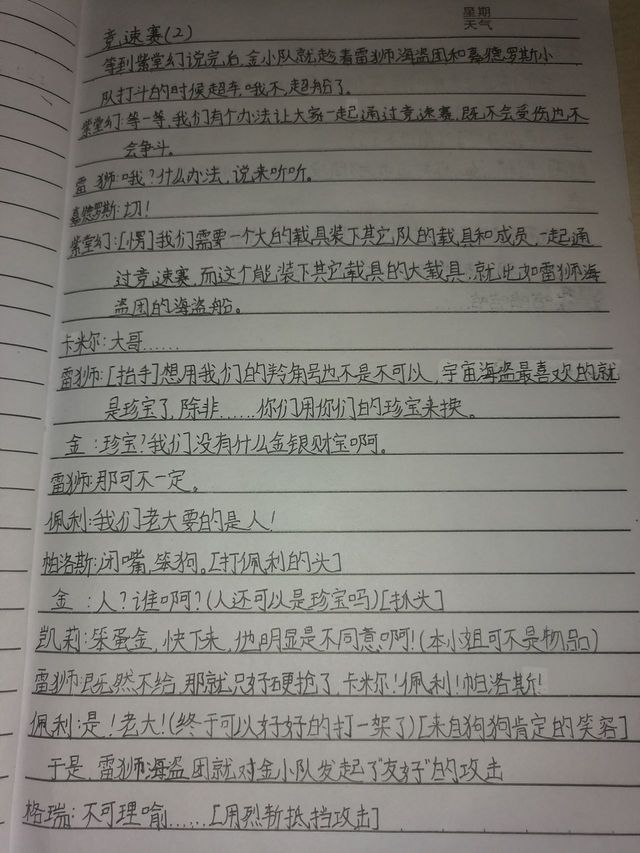 星期
天气
竞速赛(2)
等到紫堂幻说完后,金小队就趁着雷狮海盗团和嘉德罗斯小
队打斗的时候超车哦不,超船了。
紫堂幻:等一等,我们有个办法让大家一起通过竞速赛,既不会受伤也不
会争斗。
雷狮:哦?什么办法,说来听听。
嘉德罗斯:切!
紫堂幻:[愣]我们需要一个大的载具装下其它队的载具和成员,一起通
过竞速赛,而这个能装下其它载具的大载具,就比如雷狮海
盗团的海盗船。
卡米尔:大哥……
雷狮:[抬手]想用我们的羚角号也不是不可以,宇宙海盗最喜欢的就
是珍宝了,除非……你们用你们的珍宝来换。
金:珍宝?我们没有什么金银财宝啊。
雷狮:那可不一定。
佩利:我们老大要的是人!
帕洛斯:闭嘴,笨狗。[打佩利的头]
金:人?谁啊?(人还可以是珍宝吗)[抓头]
凯莉:笨蛋金,快下来,他明显是不同意啊!(本小姐可不是物品)
雷狮:既然不给,那就只好硬抢了,卡米尔!佩利!帕洛斯!
佩利:是!老大!(终于可以好好的打一架了)[来自狗狗肯定的笑容]
于是,雷狮海盗团就对金小队发起了"友好"的攻击
格瑞:不可理喻……[用烈斩抵挡攻击]